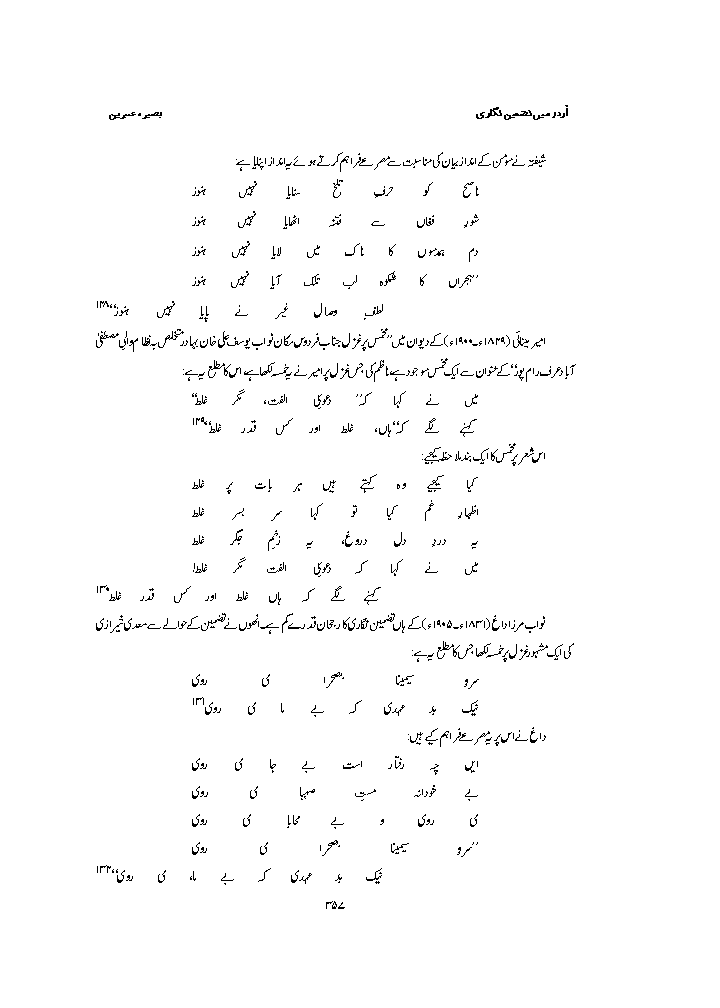 اُردو میں تضمین نگاری
بصیرہ عنبرین
شیفتہ نے مومن کے اندازِ بیان کی مناسبت سے مصرعے فراہم کرتے ہوئے یہ انداز اپنایا ہے:
ناصح کو حرفِ تلخ سنایا نہیں ہنوز
شورِ فغاں سے فتنہ اٹھایا نہیں ہنوز
دم ہمدموں کا ناک میں لایا نہیں ہنوز
”ہجراں کا شکوہ لب تلک آیا نہیں ہنوز
لطفِ وصال غیر نے پایا نہیں ہنوز“۱۲۸
امیر مینائی (۱۸۲۹ء۔۱۹۰۰ء) کے دیوان میں ”مخمس بر غزل جناب فردوس مکان نواب یوسف علی خان بہادر متخلص بہ ناظم والیِ مصطفیٰ
آباد عرف رام پور“ کے عنوان سے ایک مخمس موجود ہے، ناظم کی جس غزل پر امیر نے یہ خمسہ لکھا ہے اس کا مطلع یہ ہے:
میں نے کہا کہ” دعویٰ الفت، مگر غلط“
کہنے لگے کہ“ہاں، غلط اور کس قدر غلط“۱۲۹
اس شعر پر مخمس کا ایک بند ملاحظہ کیجیے:
کیا کیجیے وہ کہتے ہیں ہر بات پر غلط
اظہارِ غم کیا تو کہا سر بسر غلط
یہ دردِ دل دروغ، یہ زخمِ جگر غلط
میں نے کہا کہ دعویٰ الفت مگر غلط!
کہنے لگے کہ ہاں غلط اور کس قدر غلط۱۳۰
نواب مرزا داغ (۱۸۳۱ء۔۱۹۰۵ء) کے ہاں تضمین نگاری کا رجحان قدرے کم ہے۔ انھوں نے تضمین کے حوالے سے سعدی شیرازی
کی ایک مشہور غزل پر خمسہ لکھا جس کا مطلع یہ ہے:
سرو سیمینا بصحرا می روی
نیک بد عہدی کہ بے ما می روی۱۳۱
داغ نے اس پر یہ مصرعے فراہم کیے ہیں:
ایں چہ رفتار است بے جا می روی
بے خودانہ مستِ صہبا می روی
می روی و بے محابا می روی
”سرو سیمینا بصحرا می روی
نیک بد عہدی کہ بے ما، می روی“۱۳۲
۳۵۷